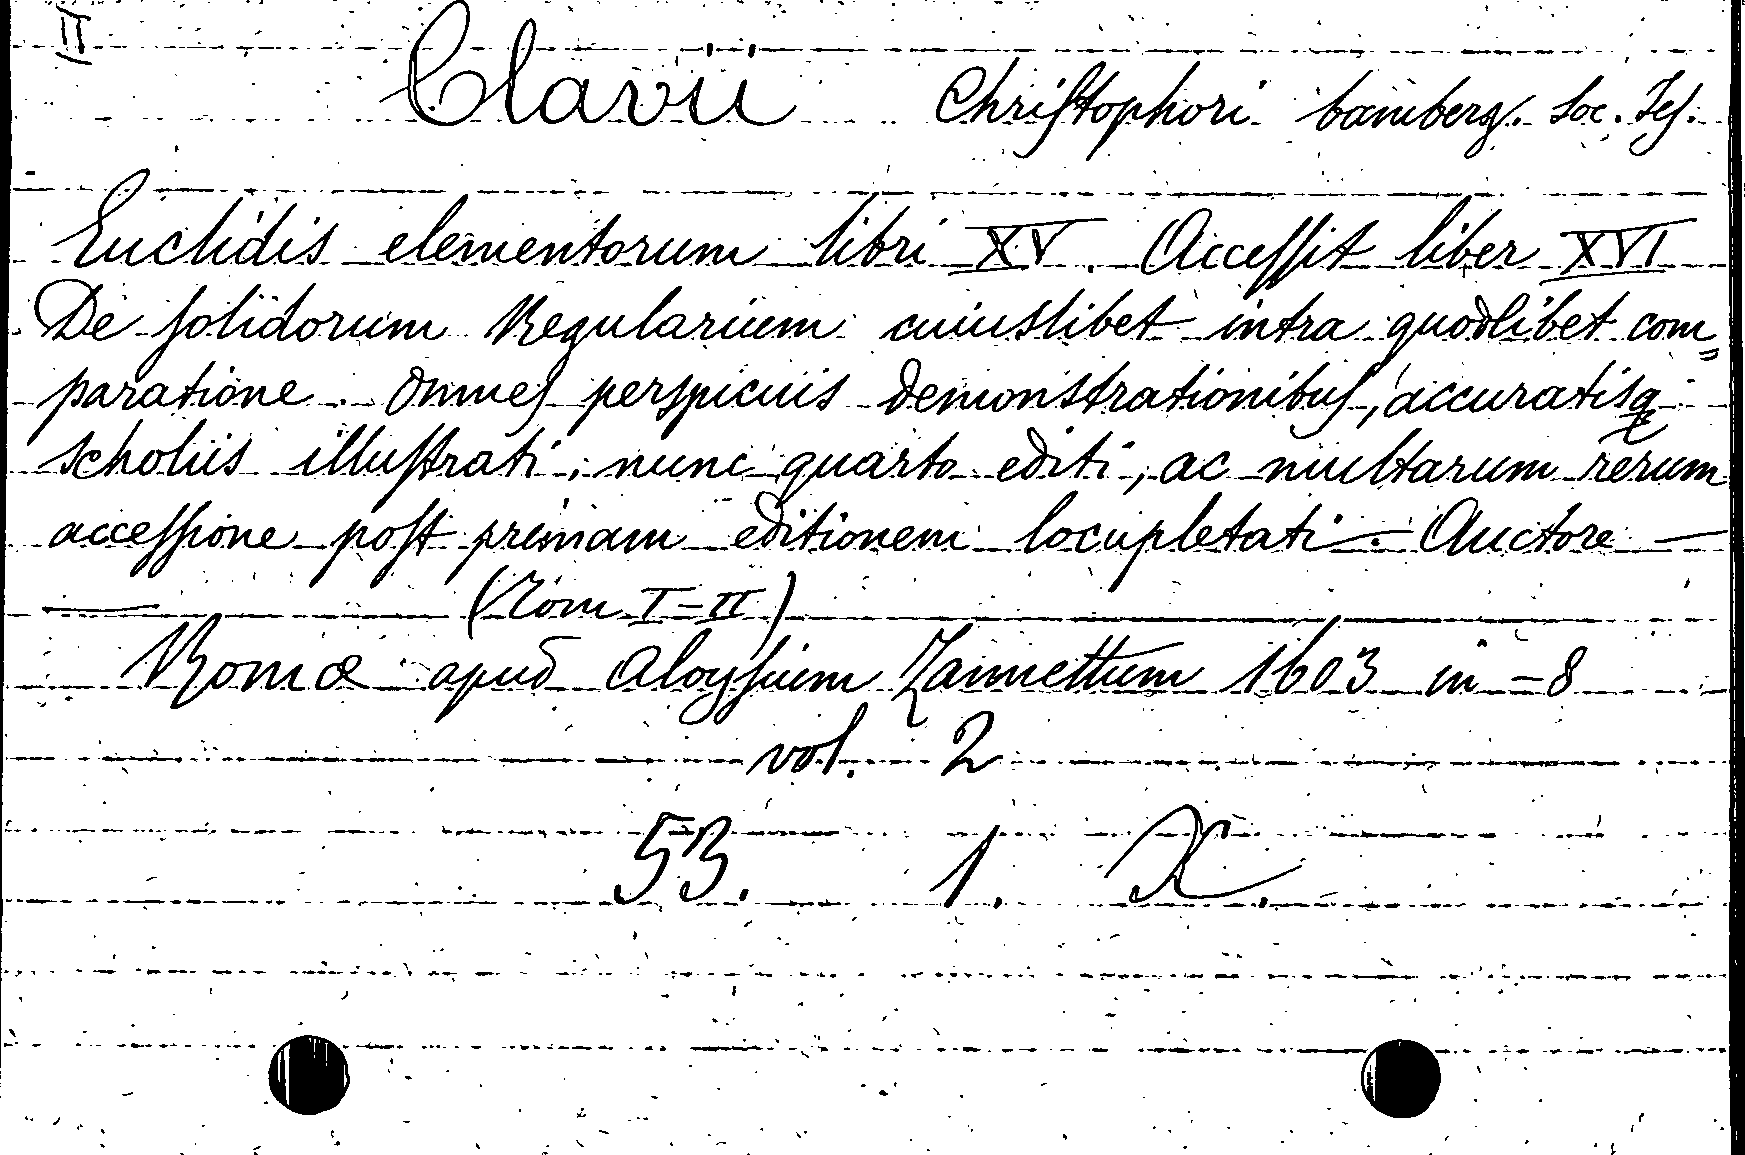 II
Clavii Christophori bamberg. Soc. Jes.
Euclidis elementorum libri XV. Accessit liber XVI
De solidorum Regularium cuiuslibet intra quodlibet com„
paratione. Omnes perspicuis demonstrationibus, accuratisq
scholiis illustrati, nunc quarto editi, ac multarum rerum
accessione post primam editionem locupletati. Auctore —
— (Tom I–II)
Romæ apud Aloysium Zannettum 1603 in -8
vol. 2
53. 1. X.